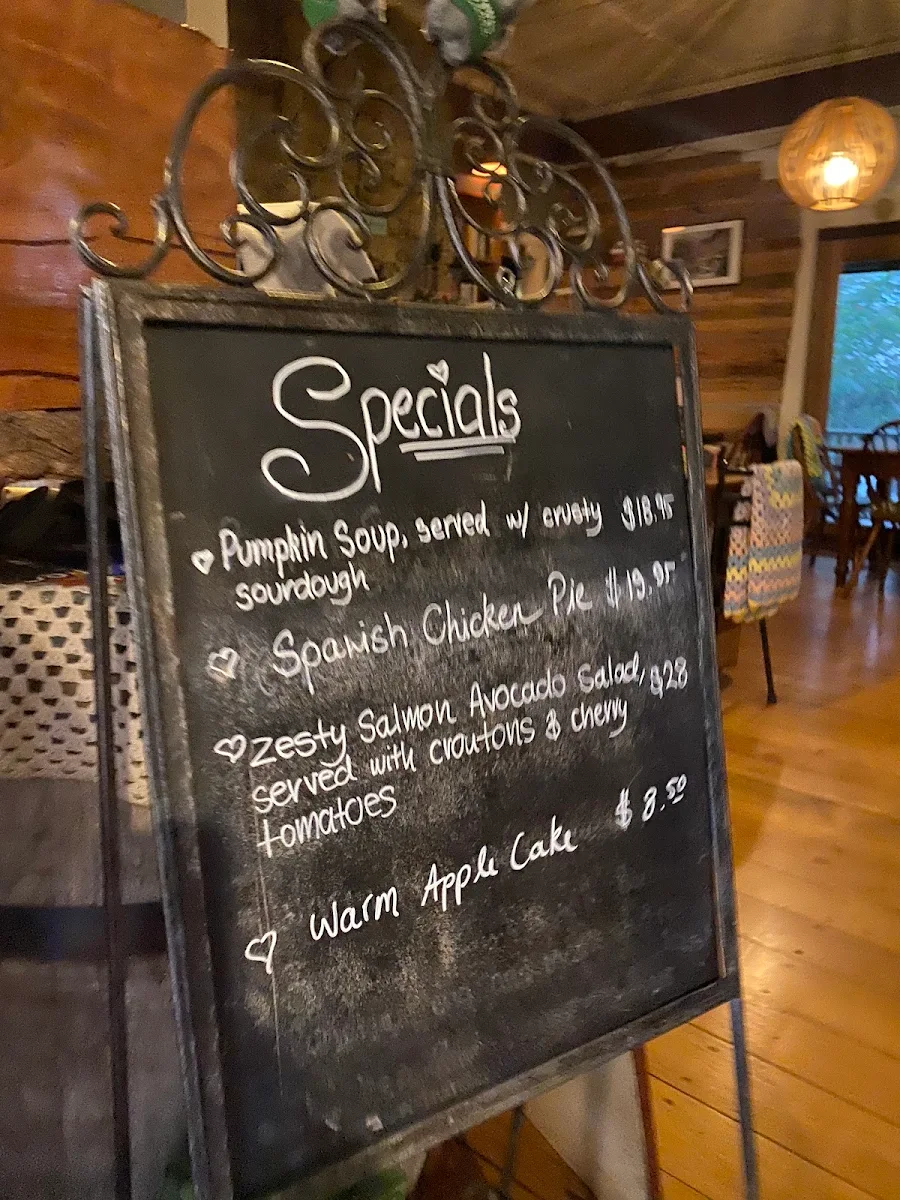 Specials
Pumpkin Soup, served w/ crusty $18.95
sourdough
Spanish Chicken Pie $19.95
Zesty Salmon Avocado Salad, $28
served with croutons & cherry
tomatoes
Warm Apple Cake $8.50